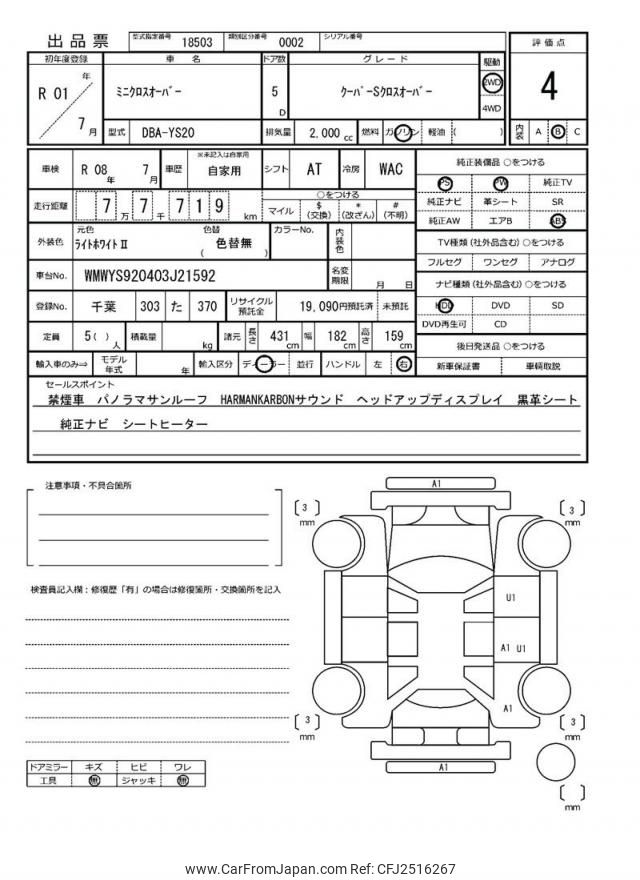 出品票 型式指定番号 18503 類別区分番号 0002 シリアル番号
初年度登録 車 名 ドア数 グレード 駆動 評価点
R 01 年 7 月 ミニクロスオーバー 5 D クーパーSクロスオーバー 2WD 4WD 4
型式 DBA-YS20 排気量 2,000 cc 燃料 ガソリン 軽油 ( ) 内装 A B C
車検 R 08 年 7 月 車歴 ※未記入は自家用 自家用 シフト AT 冷房 WAC 純正装備品 ○をつける
PS PW 純正TV
走行距離 7 万 7 千 7 1 9 km ○をつける
マイル $ (交換) * (改ざん) # (不明)
純正ナビ 革シート SR
純正AW エアB ABS
外装色 元色 ライトホワイトⅡ 色替 ( 色替無 ) カラーNo. 内装色
TV種類 (社外品含む) ○をつける
フルセグ ワンセグ アナログ
車台No. WMWYS920403J21592 名変期限 月 日
ナビ種類 (社外品含む) ○をつける
登録No. 千葉 303 た 370 リサイクル預託金 19,090円預託済 未預託
HDD DVD SD
DVD再生可 CD
定員 5 ( ) 人 積載量 kg 諸元 長さ 431 cm 幅 182 cm 高さ 159 cm
後日発送品 ○をつける
輸入車のみ⇒ モデル年式 年 輸入区分 ディーラー 並行 ハンドル 左 右
新車保証書 車輌取説
セールスポイント
禁煙車 パノラマサンルーフ HARMANKARBONサウンド ヘッドアップディスプレイ 黒革シート
純正ナビ シートヒーター
注意事項・不具合箇所
検査員記入欄：修復歴「有」の場合は修復箇所・交換箇所を記入
A1
[ 3 ] mm
[ 3 ] mm
U1
A1 U1
A1
[ 3 ] mm
[ 3 ] mm
A1
[ ] mm
ドアミラー キズ ヒビ ワレ
工具 無 ジャッキ 無
www.CarFromJapan.com Ref: CFJ2516267